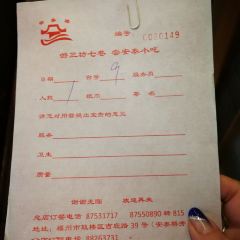 编号
0030149
游三坊七巷 尝安泰小吃
日期 台号 9 服务员
人数 1 账单 签名
请您对用餐提出宝贵的意见
服务
卫生
质量
谢谢光临 欢迎再来
总店订餐电话 87531717 87550890 转 815
地址：福州市鼓楼区吉庇路 39 号（安泰桥旁
订餐电话 88263731